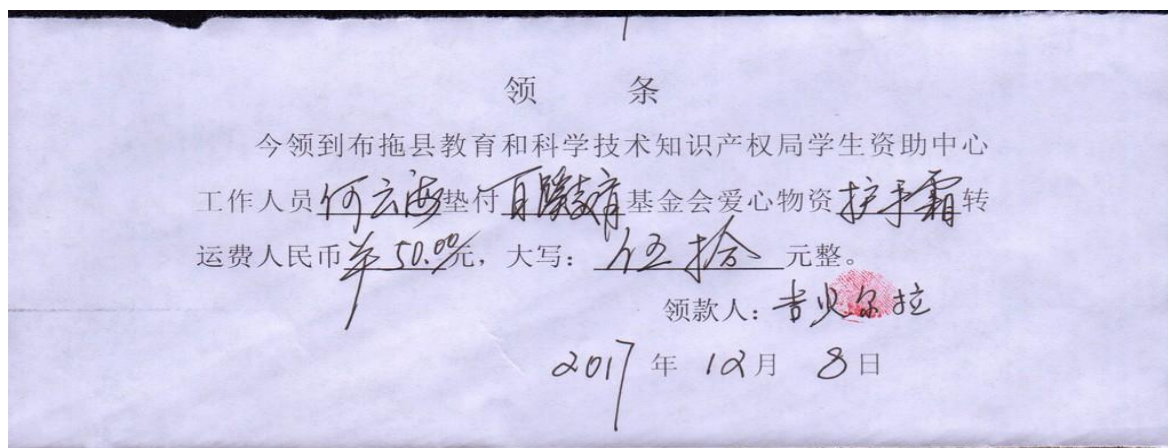 领 条
今领到布拖县教育和科学技术知识产权局学生资助中心
工作人员何云海垫付百隆教育基金会爱心物资护手霜转
运费人民币¥50.00元，大写：伍拾元整。
领款人：吉火尔拉
2017年12月8日